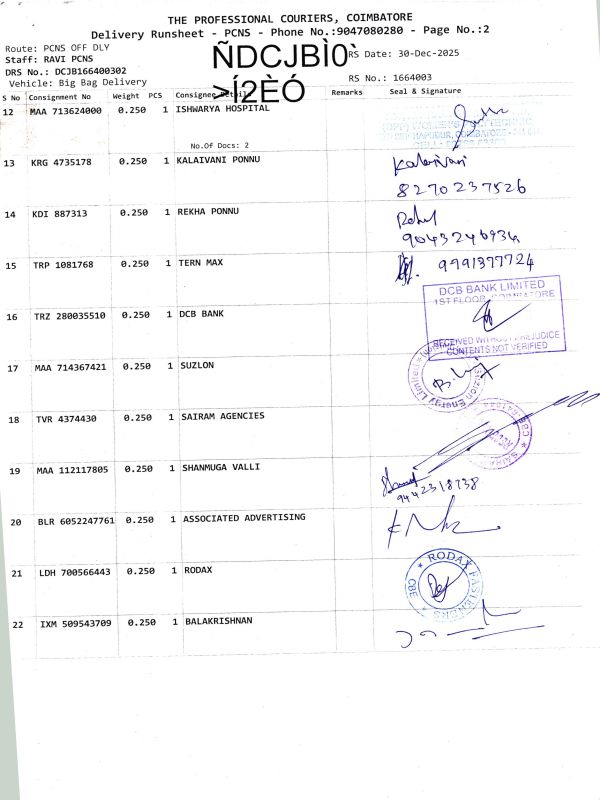 THE PROFESSIONAL COURIERS, COIMBATORE
Delivery Runsheet - PCNS - Phone No.:9047080280 - Page No.:2
Route: PCNS OFF DLY
Staff: RAVI PCNS
DRS No.: DCJB166400302
Vehicle: Big Bag Delivery
ÑDCJBÌ0`
>Í2ÈÓ
RS Date: 30-Dec-2025
RS No.: 1664003
S No Consignment No Weight PCS Consignee Details Remarks Seal & Signature
12 MAA 713624000 0.250 1 ISHWARYA HOSPITAL
No.Of Docs: 2
13 KRG 4735178 0.250 1 KALAIVANI PONNU Kalaivani
8270237526
14 KDI 887313 0.250 1 REKHA PONNU
15 TRP 1081768 0.250 1 TERN MAX 9991377724
16 TRZ 280035510 0.250 1 DCB BANK
DCB BANK LIMITED
1ST FLOOR, COIMBATORE
RECEIVED WITHOUT PREJUDICE
CONTENTS NOT VERIFIED
17 MAA 714367421 0.250 1 SUZLON
Suzlon Energy Limited
18 TVR 4374430 0.250 1 SAIRAM AGENCIES
19 MAA 112117805 0.250 1 SHANMUGA VALLI
9442318738
20 BLR 6052247761 0.250 1 ASSOCIATED ADVERTISING
21 LDH 700566443 0.250 1 RODAX
RODAX FASTENERS
CBE
22 IXM 509543709 0.250 1 BALAKRISHNAN